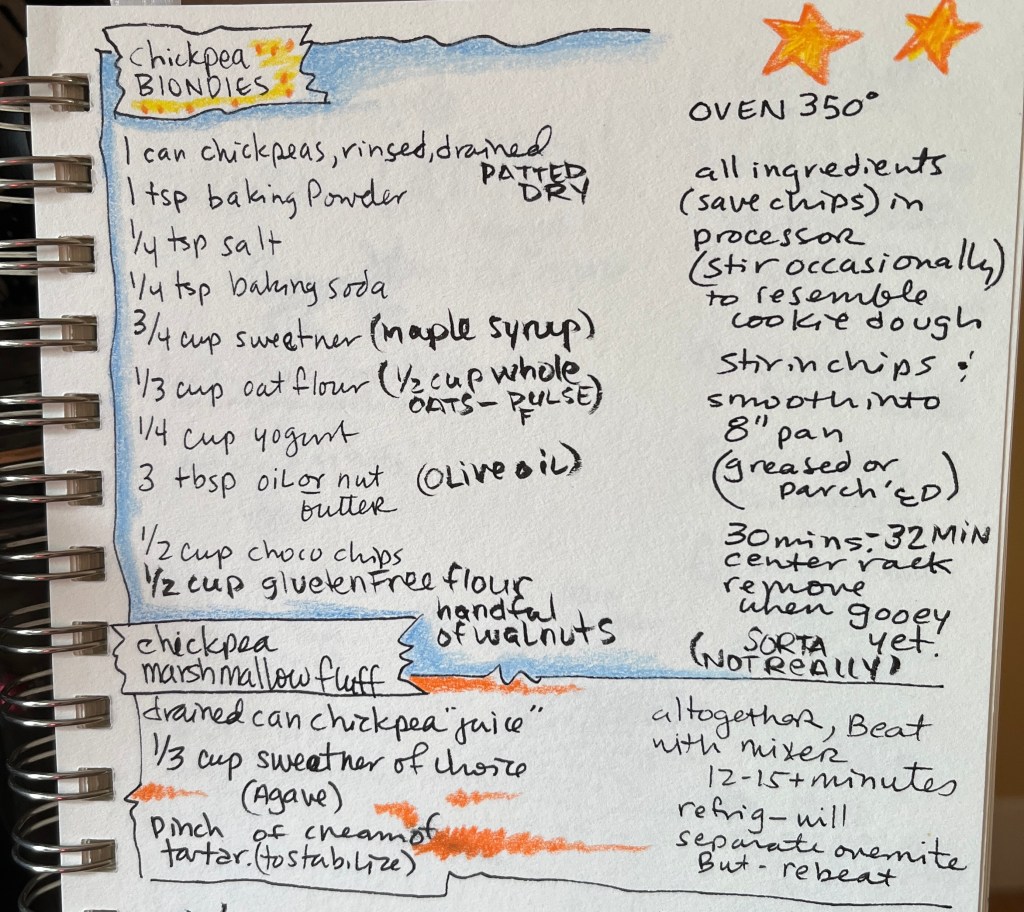 chickpea
BLONDIES
1 can chickpeas, rinsed, drained
PATTED
DRY
1 tsp baking Powder
1/4 tsp salt
1/4 tsp baking soda
3/4 cup sweetner (maple syrup)
1/3 cup oat flour (1/2 cup whole
OATS - PULSE)
1/4 cup yogurt
3 tbsp oil or nut (OLive oil)
butter
1/2 cup choco chips
1/2 cup glueten Free flour
handful
of walnuts
OVEN 350°
all ingredients
(save chips) in
processor
(stir occasionally)
to resemble
cookie dough
stir in chips &
smooth into
8" pan
(greased or
parch'ed)
30 mins - 32 MIN
center rack
remove
when gooey
SORTA yet.
(NOT REALLY)
chickpea
marshmallow fluff
drained can chickpea "juice"
1/3 cup sweetner of choice
(Agave)
pinch of cream of
tartar. (to stabilize)
altogether, Beat
with mixer
12-15+ minutes
refrig - will
separate overnite
But - rebeat